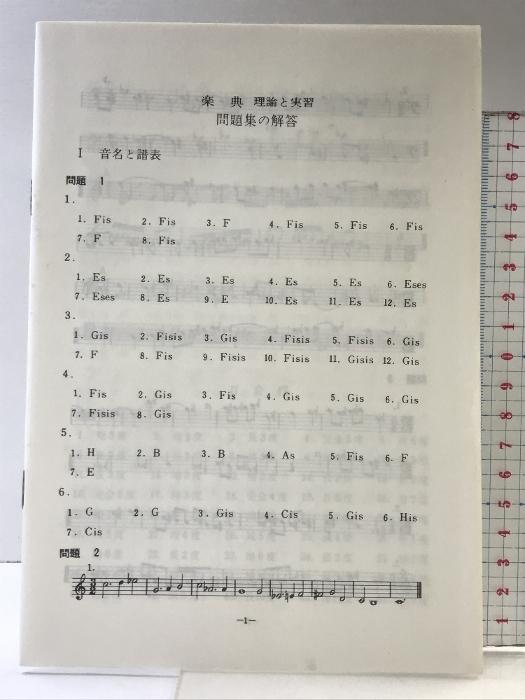 楽典 理論と実習
問題集の解答
I 音名と譜表
問題 1
1.
1. Fis 2. Fis 3. F 4. Fis 5. Fis 6. Fis
7. F 8. Fis
2.
1. Es 2. Es 3. Es 4. Es 5. Es 6. Eses
7. Eses 8. Es 9. E 10. Es 11. Es 12. Es
3.
1. Gis 2. Fisis 3. Gis 4. Fisis 5. Fisis 6. Gis
7. F 8. Fis 9. Fisis 10. Fisis 11. Gisis 12. Gis
4.
1. Fis 2. Gis 3. Fis 4. Gis 5. Gis 6. Gis
7. Fisis 8. Gis
5.
1. H 2. B 3. B 4. As 5. Fis 6. F
7. E
6.
1. G 2. G 3. Gis 4. Cis 5. Gis 6. His
7. Cis
問題 2
1.
—1—
8
7
6
5
4
3
2
1
0
9
8
7
6
5
4
3
2
1